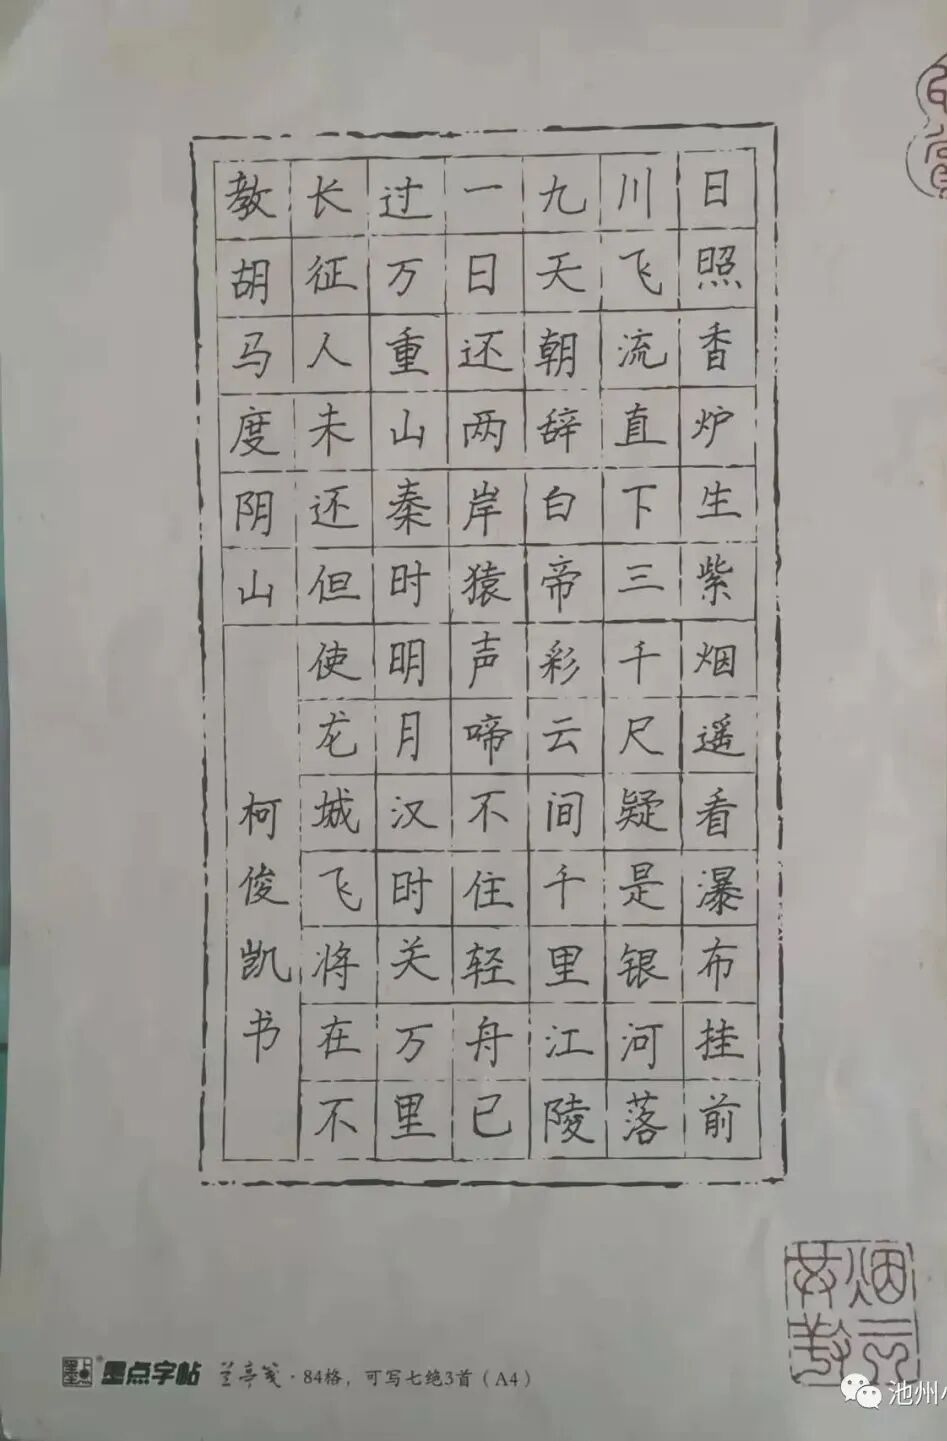 日照香炉生紫烟遥看瀑布挂前
川飞流直下三千尺疑是银河落
九天朝辞白帝彩云间千里江陵
一日还两岸猿声啼不住轻舟已
过万重山秦时明月汉时关万里
长征人未还但使龙城飞将在不
教胡马度阴山
柯俊凯书
墨点字帖 兰亭笺·84格，可写七绝3首（A4）
池州